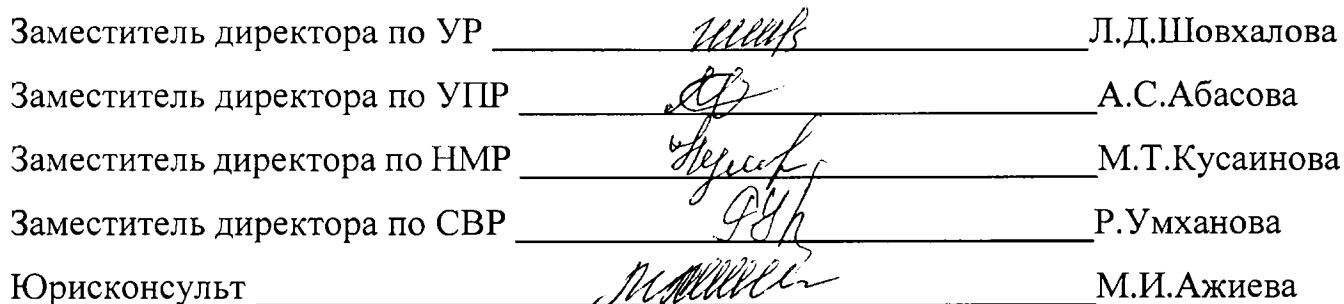 Заместитель директора по УР Л.Д.Шовхалова
Заместитель директора по УПР А.С.Абасова
Заместитель директора по НМР М.Т.Кусаинова
Заместитель директора по СВР Р.Умханова
Юрисконсульт М.И.Ажиева